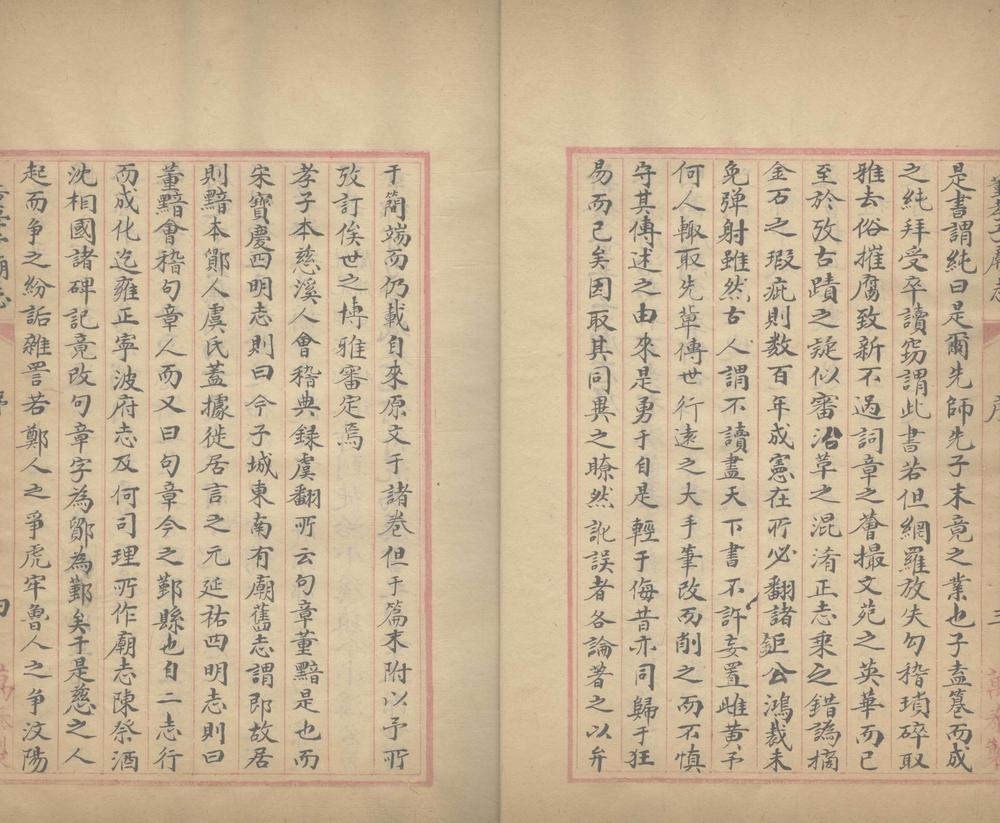 是書謂純曰是爾先師先子未竟之業也子盍篹而成
之純拜受卒讀竊謂此書若但網羅放失勾稽瑣碎取
雅去俗摧腐致新不過詞章之薈撮文苑之英華而已
至於攷古蹟之疑似審沿革之混淆正志乘之錯譌摘
金石之瑕疵則数百年成憲在所必翻諸鉅公鴻裁未
免彈射雖然古人謂不讀盡天下書不許妄置雌黃予
何人輙取先軰傳世行遠之大手筆改而削之而不慎
守其傳述之由來是勇于自是輕于侮昔亦同歸于狂
易而已矣因取其同異之瞭然訛誤者各論著之以弁
于簡端而仍載自來原文于諸卷但于篇末附以予所
攷訂俟世之博雅審定焉
孝子本慈溪人會稽典録虞翻所云句章董黯是也而
宋寶慶四明志則曰今子城東南有廟舊志謂即故居
則黯本鄮人虞氏蓋據徙居言之元延祐四明志則曰
董黯會稽句章人而又曰句章今之鄞縣也自二志行
而成化迄雍正寧波府志及何司理所作廟志陳祭酒
沈相國諸碑記竟改句章字為鄮為鄞矣于是慈之人
起而争之紛詬雜詈若鄭人之爭虎牢魯人之争汶陽